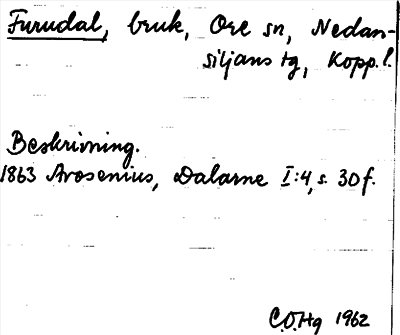 Furudal, bruk, Ore sn, Nedan-
siljans tg, Kopp. l.
Beskrivning.
1863 Arosenius, Dalarne I:4, s. 30 f.
C.O.Hg 1962